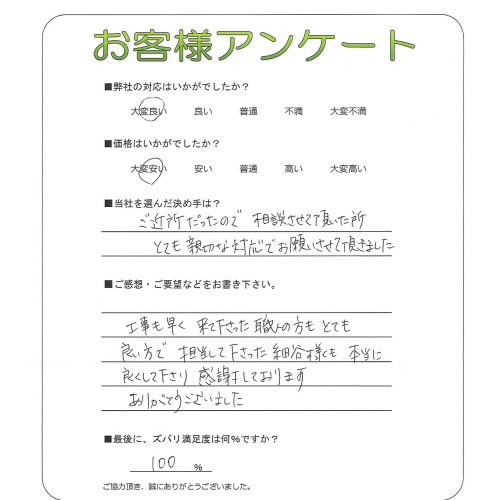 お客様アンケート
■弊社の対応はいかがでしたか?
大変良い 良い 普通 不満 大変不満
■価格はいかがでしたか?
大変安い 安い 普通 高い 大変高い
■当社を選んだ決め手は?
ご近所だったので 相談させて頂いた所
とても親切な対応でお願いさせて頂きました
■ご感想・ご要望などをお書き下さい。
工事も早く 来て下さった職人の方もとても
良い方で 担当して下さった細谷様も 本当に
良くして下さり 感謝しております
ありがとうございました
■最後に、ズバリ満足度は何%ですか?
100 %
ご協力頂き、誠にありがとうございました。